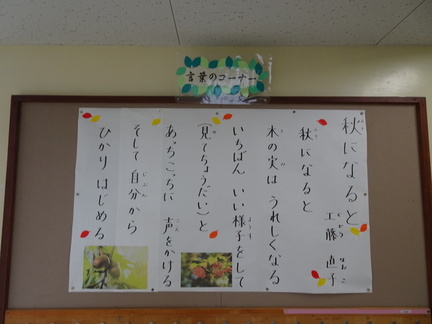 言葉のコーナー
秋になると
工藤 直子
秋になると
木の実は うれしくなる
いちばん いい様子をして
(見てちょうだい)と
あっちこっちに 声をかける
そして 自分から
ひかり はじめる